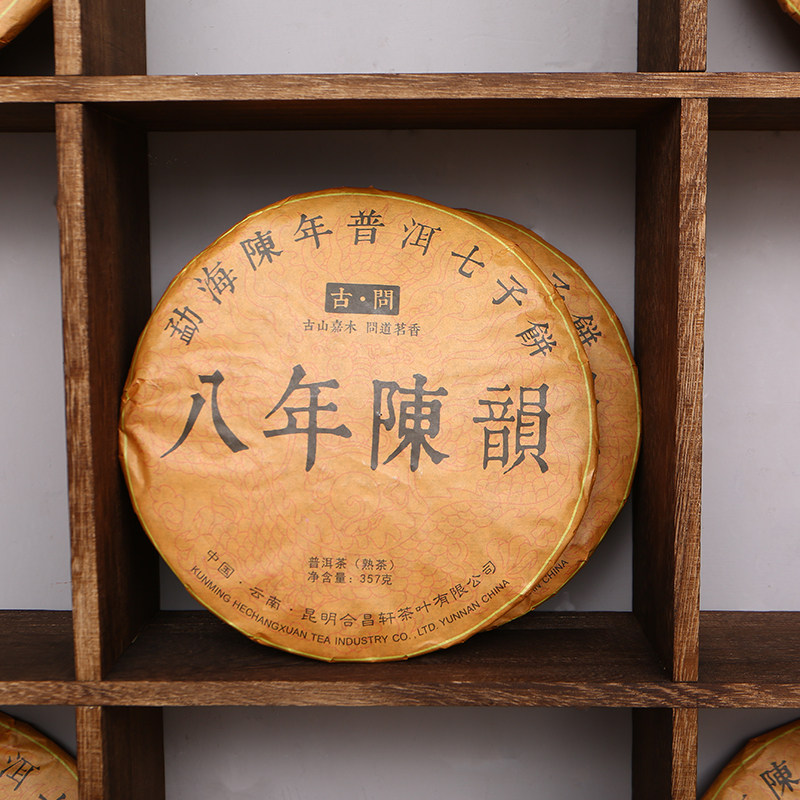 勐海陳年普洱七子餅
古·問
古山嘉木 問道茗香
八年陳韻
普洱茶（熟茶）
净含量：357克
中国·云南·昆明合昌轩茶叶有限公司
KUNMING HECHANGXUAN TEA INDUSTRY CO., LTD. YUNNAN CHINA
子餅
CHINA
洱七
陳